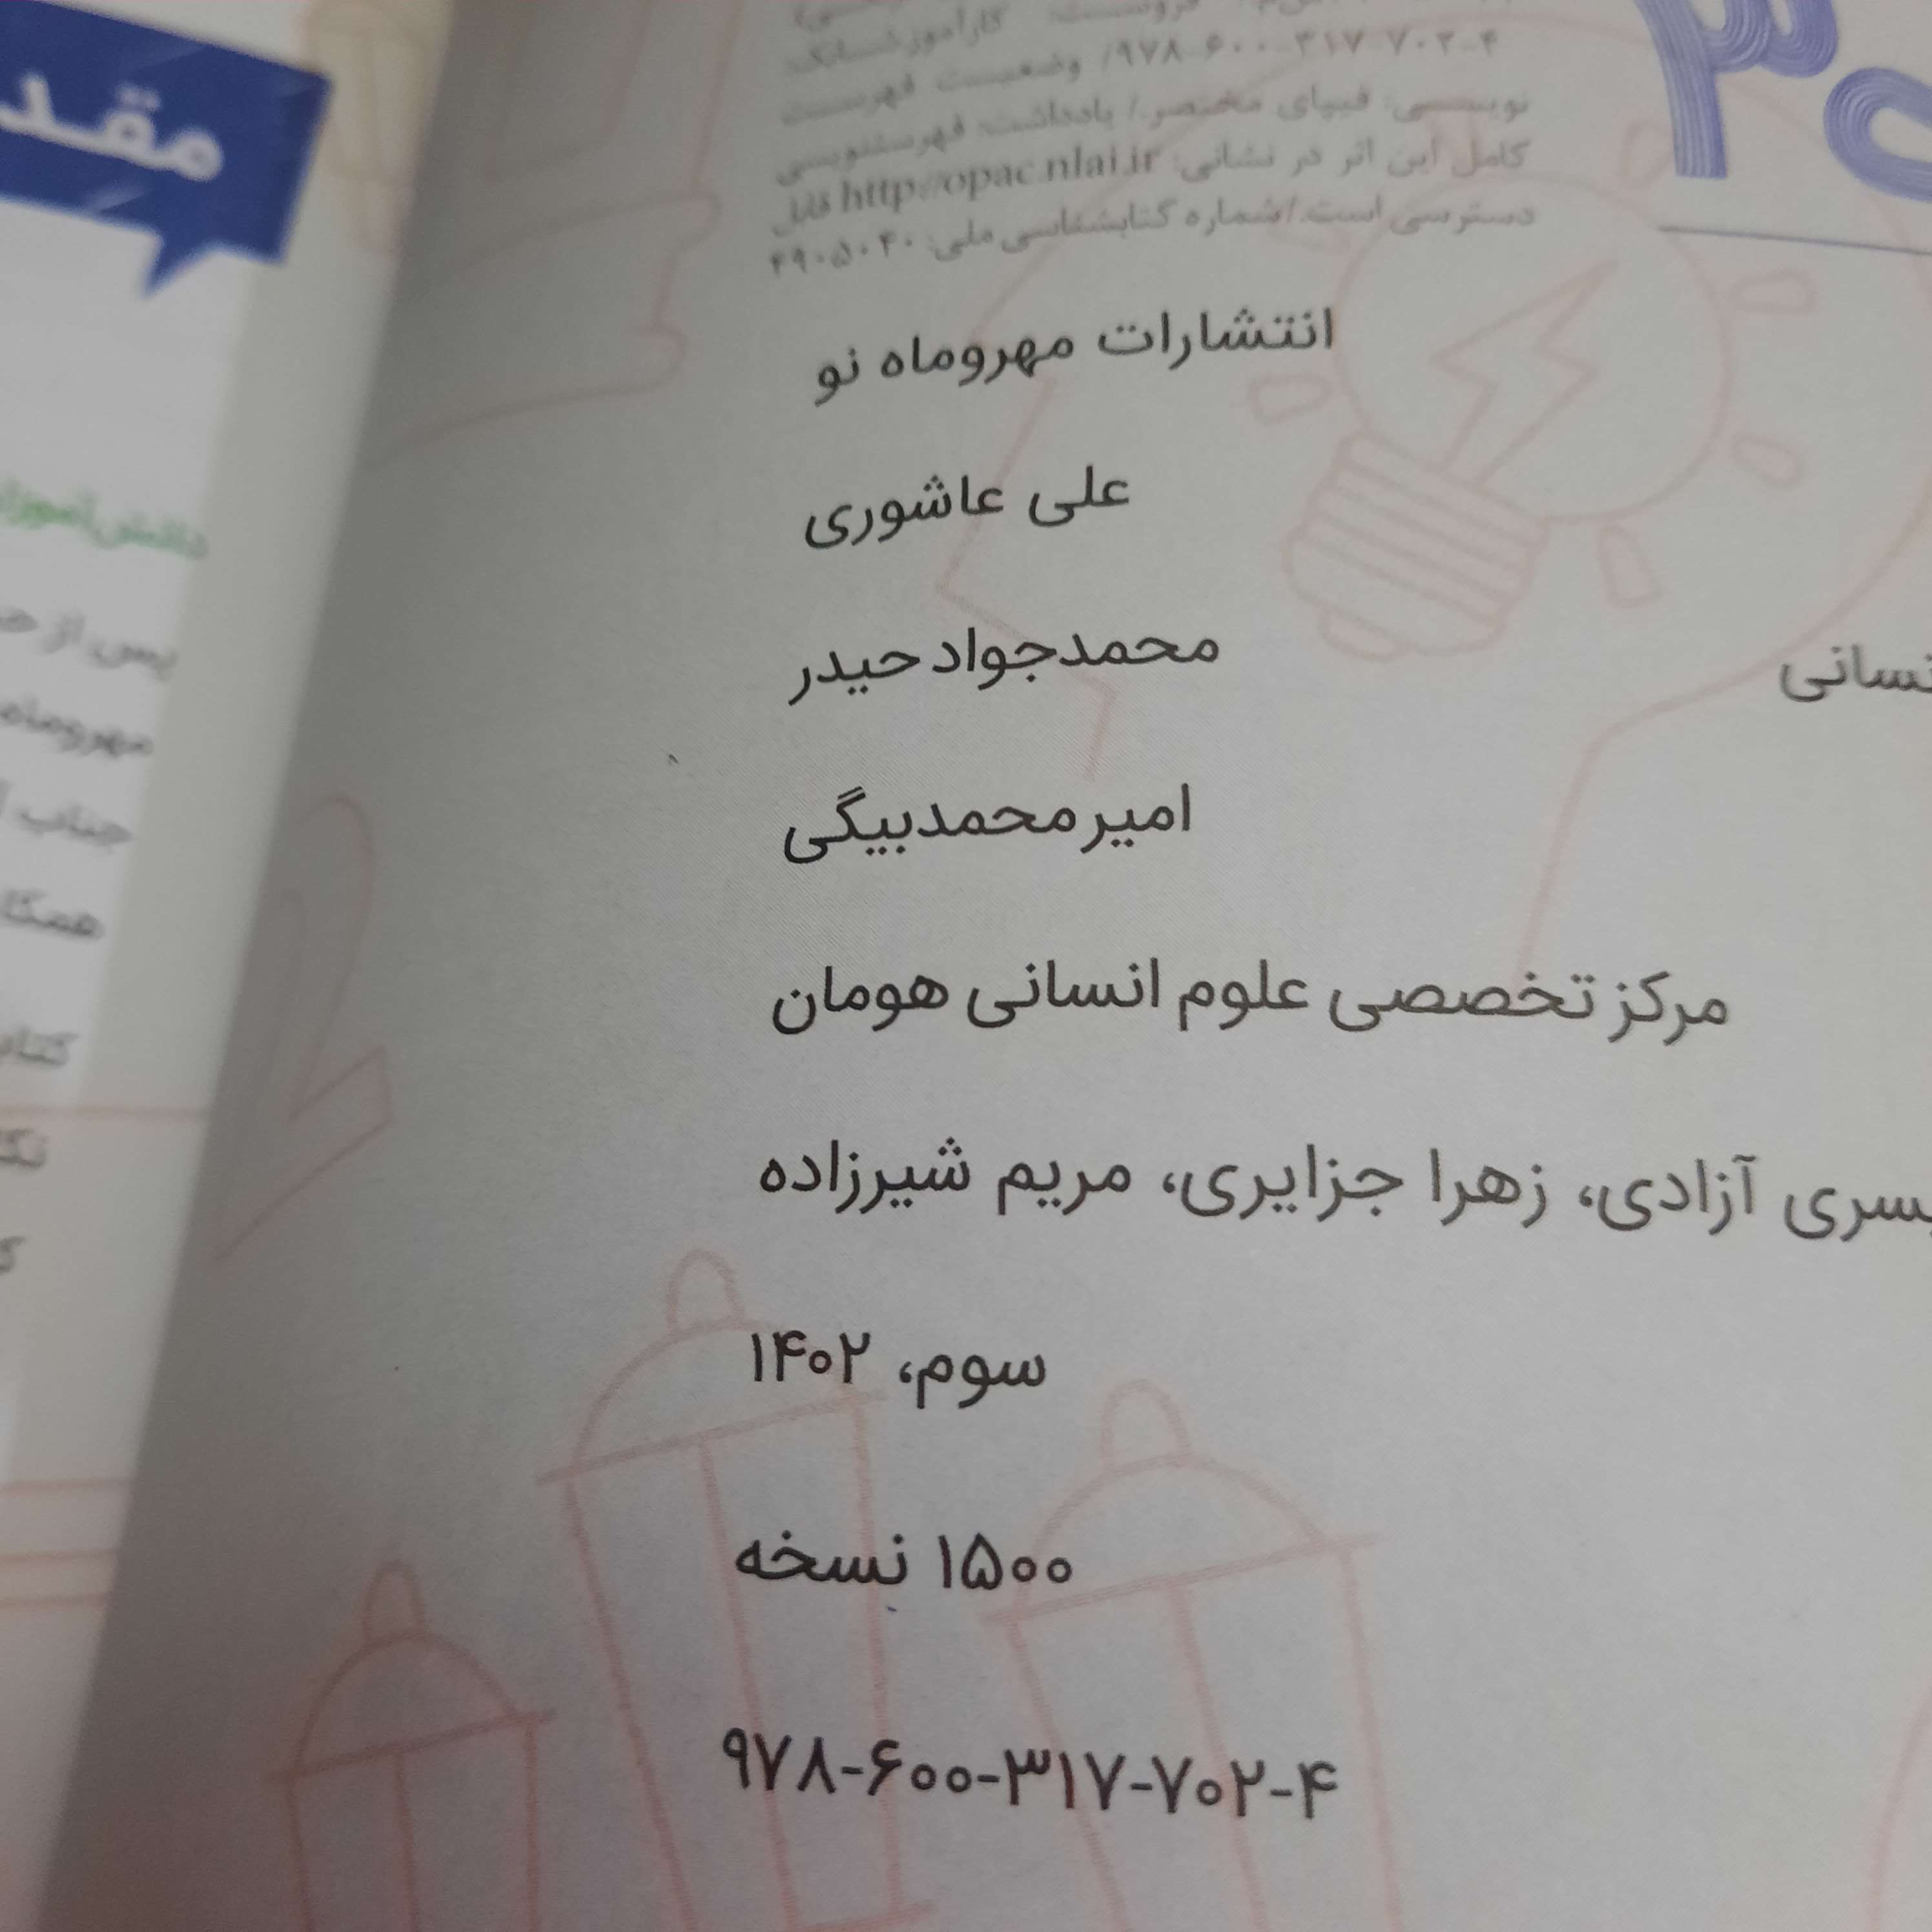 ۹۷۸-۶۰۰-۳۱۷-۷۰۲-۴/ وضعیت فهرست
نویسی: فیپای مختصر./ یادداشت: فهرستنویسی
کامل این اثر در نشانی: http://opac.nlai.ir قابل
دسترسی است./شماره کتابشناسی ملی: ۴۹۰۵۰۴۰
انتشارات مهروماه نو
علی عاشوری
محمدجواد حیدر
امیر محمدبیگی
مرکز تخصصی علوم انسانی هومان
آزادی، زهرا جزایری، مریم شیرزاده
سوم، ۱۴۰۲
۱۵۰۰ نسخه
۹۷۸-۶۰۰-۳۱۷-۷۰۲-۴
پس از
مهروماه
جناب